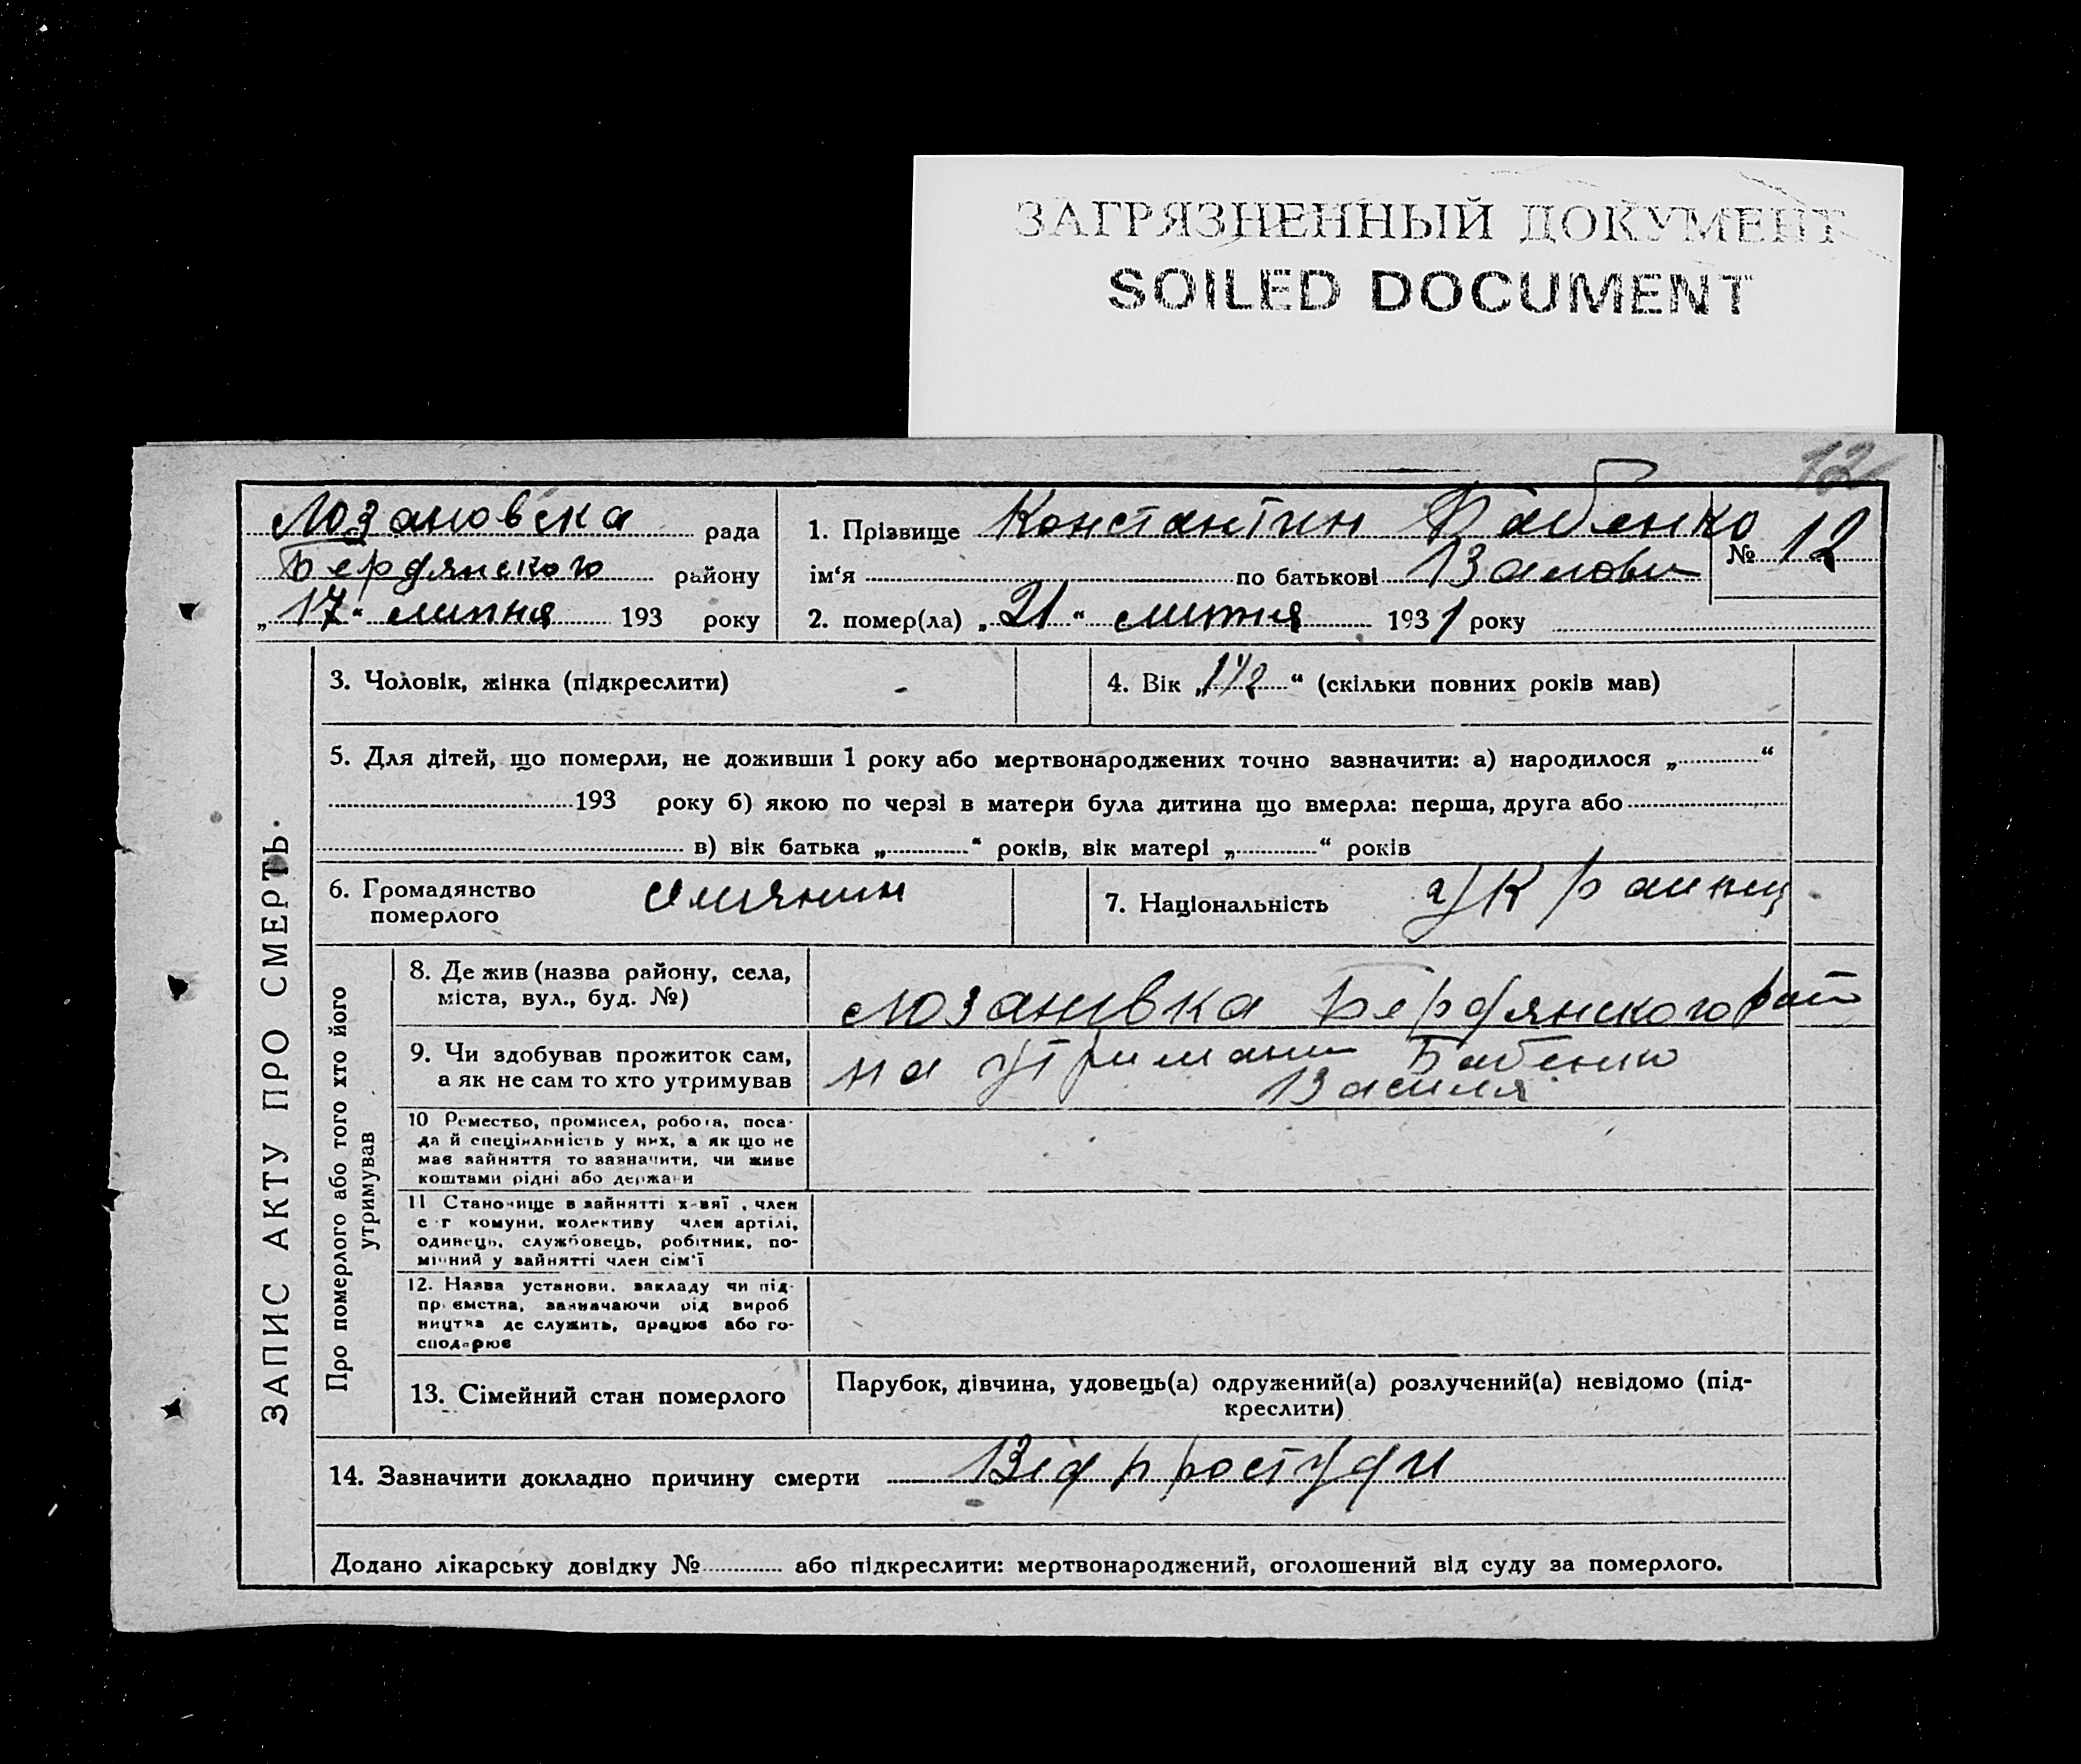 ЗАГРЯЗНЕННЫЙ ДОКУМЕНТ
SOILED DOCUMENT
12
Лозановска рада
Бердянского району
„17“ липня 193 року
1. Прізвище Константин Бабенко
ім‘я по батькові
№ 12
2. помер(ла) „21“ липня 1931 року
ЗАПИС АКТУ ПРО СМЕРТЬ.
3. Чоловік, жінка (підкреслити)
4. Вік „1 1/2“ (скільки повних років мав)
5. Для дітей, що померли, не доживши 1 року або мертвонароджених точно зазначити: а) народилося „ “
193 року б) якою по черзі в матери була дитина що вмерла: перша, друга або
в) вік батька „ “ років, вік матері „ “ років
6. Громадянство
померлого
7. Національність Украинц
Про померлого або того хто його
утримував
8. Де жив (назва району, села,
міста, вул., буд. №)
Лозановка Бердянского рай
9. Чи здобував прожиток сам,
а як не сам то хто утримував
на утримани Бабенко
Василя
10 Ремество, промисел, робота, поса-
да й спеціяльність у них, а як що не
має зайняття то зазначити, чи живе
коштами рідні або держави
11 Становище в зайнятті х-вяї , член
с г комуни, колективу член артілі,
одинець, службовець, робітник, по-
мічний у зайнятті член сім'ї
12. Назва установи, закладу чи під-
приємства, зазначаючи рід вироб
ництва де служить, працює або го-
сподарює
13. Сімейний стан померлого
Парубок, дівчина, удовець(а) одружений(а) розлучений(а) невідомо (під-
креслити)
14. Зазначити докладно причину смерти Від простуди
Додано лікарську довідку № або підкреслити: мертвонароджений, оголошений від суду за померлого.